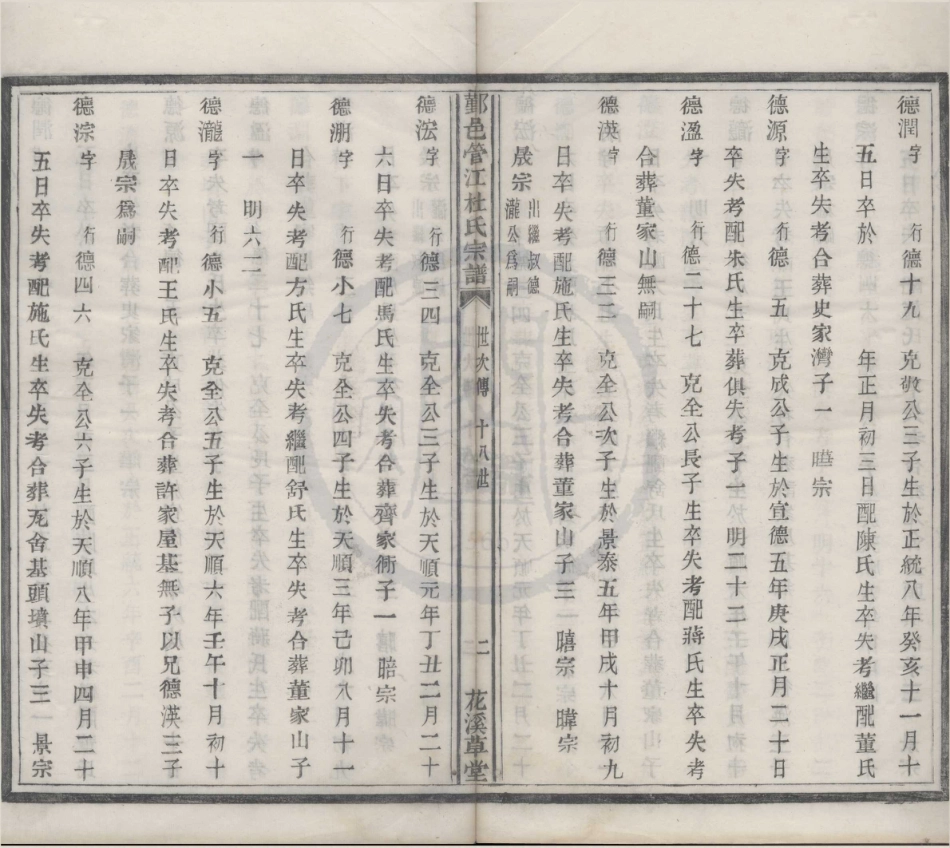 德潤字　行德十九　克敬公三子生於正統八年癸亥十一月十
五日卒於　　年正月初三日配陳氏生卒失考繼配董氏
生卒失考合葬史家灣子一　暿宗
德源字　行德　五　克成公子生於宣德五年庚戌正月三十日
卒失考配朱氏生卒葬俱失考子一　明二十二
德溋字　行德二十七　克全公長子生卒失考配蔣氏生卒失考
合葬董家山無嗣
德渶字　行德三二　克全公次子生於景泰五年甲戌十月初九
日卒失考配施氏生卒失考合葬董家山子三　暿宗　暐宗
晟宗出繼叔德瀧公爲嗣
鄞邑管江杜氏宗譜　世次傳　十八世　二　花溪草堂
德浤字　行德三四　克全公三子生於天順元年丁丑二月二十
六日卒失考配馬氏生卒失考合葬齊家衕子一　暿宗
德淜字　行德小七　克全公四子生於天順三年己卯六月十一
日卒失考配方氏生卒失考繼配舒氏生卒失考合葬董家山子
一　明六二
德瀧字　行德小五　克全公五子生於天順六年壬午十月初十
日卒失考配王氏生卒失考合葬許家屋基無子以兄德渶三子
晟宗爲嗣
德淙字　行德四六　克全公六子生於天順八年甲申四月二十
五日卒失考配施氏生卒失考合葬瓦舍基頭墳山子三　景宗